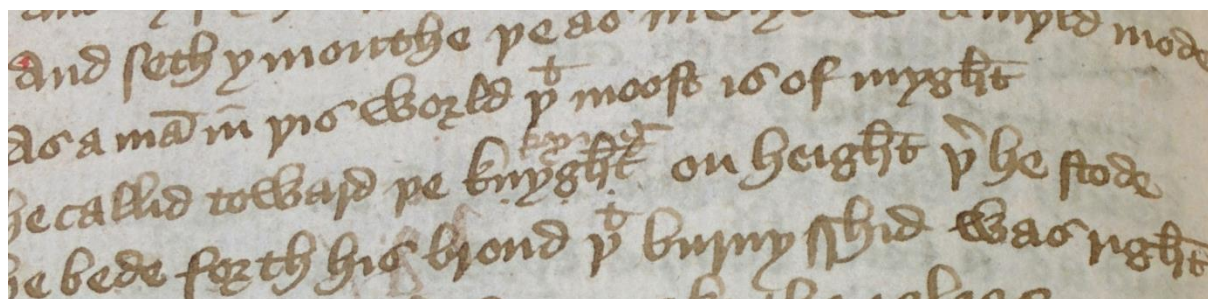 And seth y mouthe ye as amyld mode
As a mā in yis world yᵗ moost is of myght
he callid toward ye knyght on height yʳ he stode
he bede forth his brond yᵗ burnysshid was right